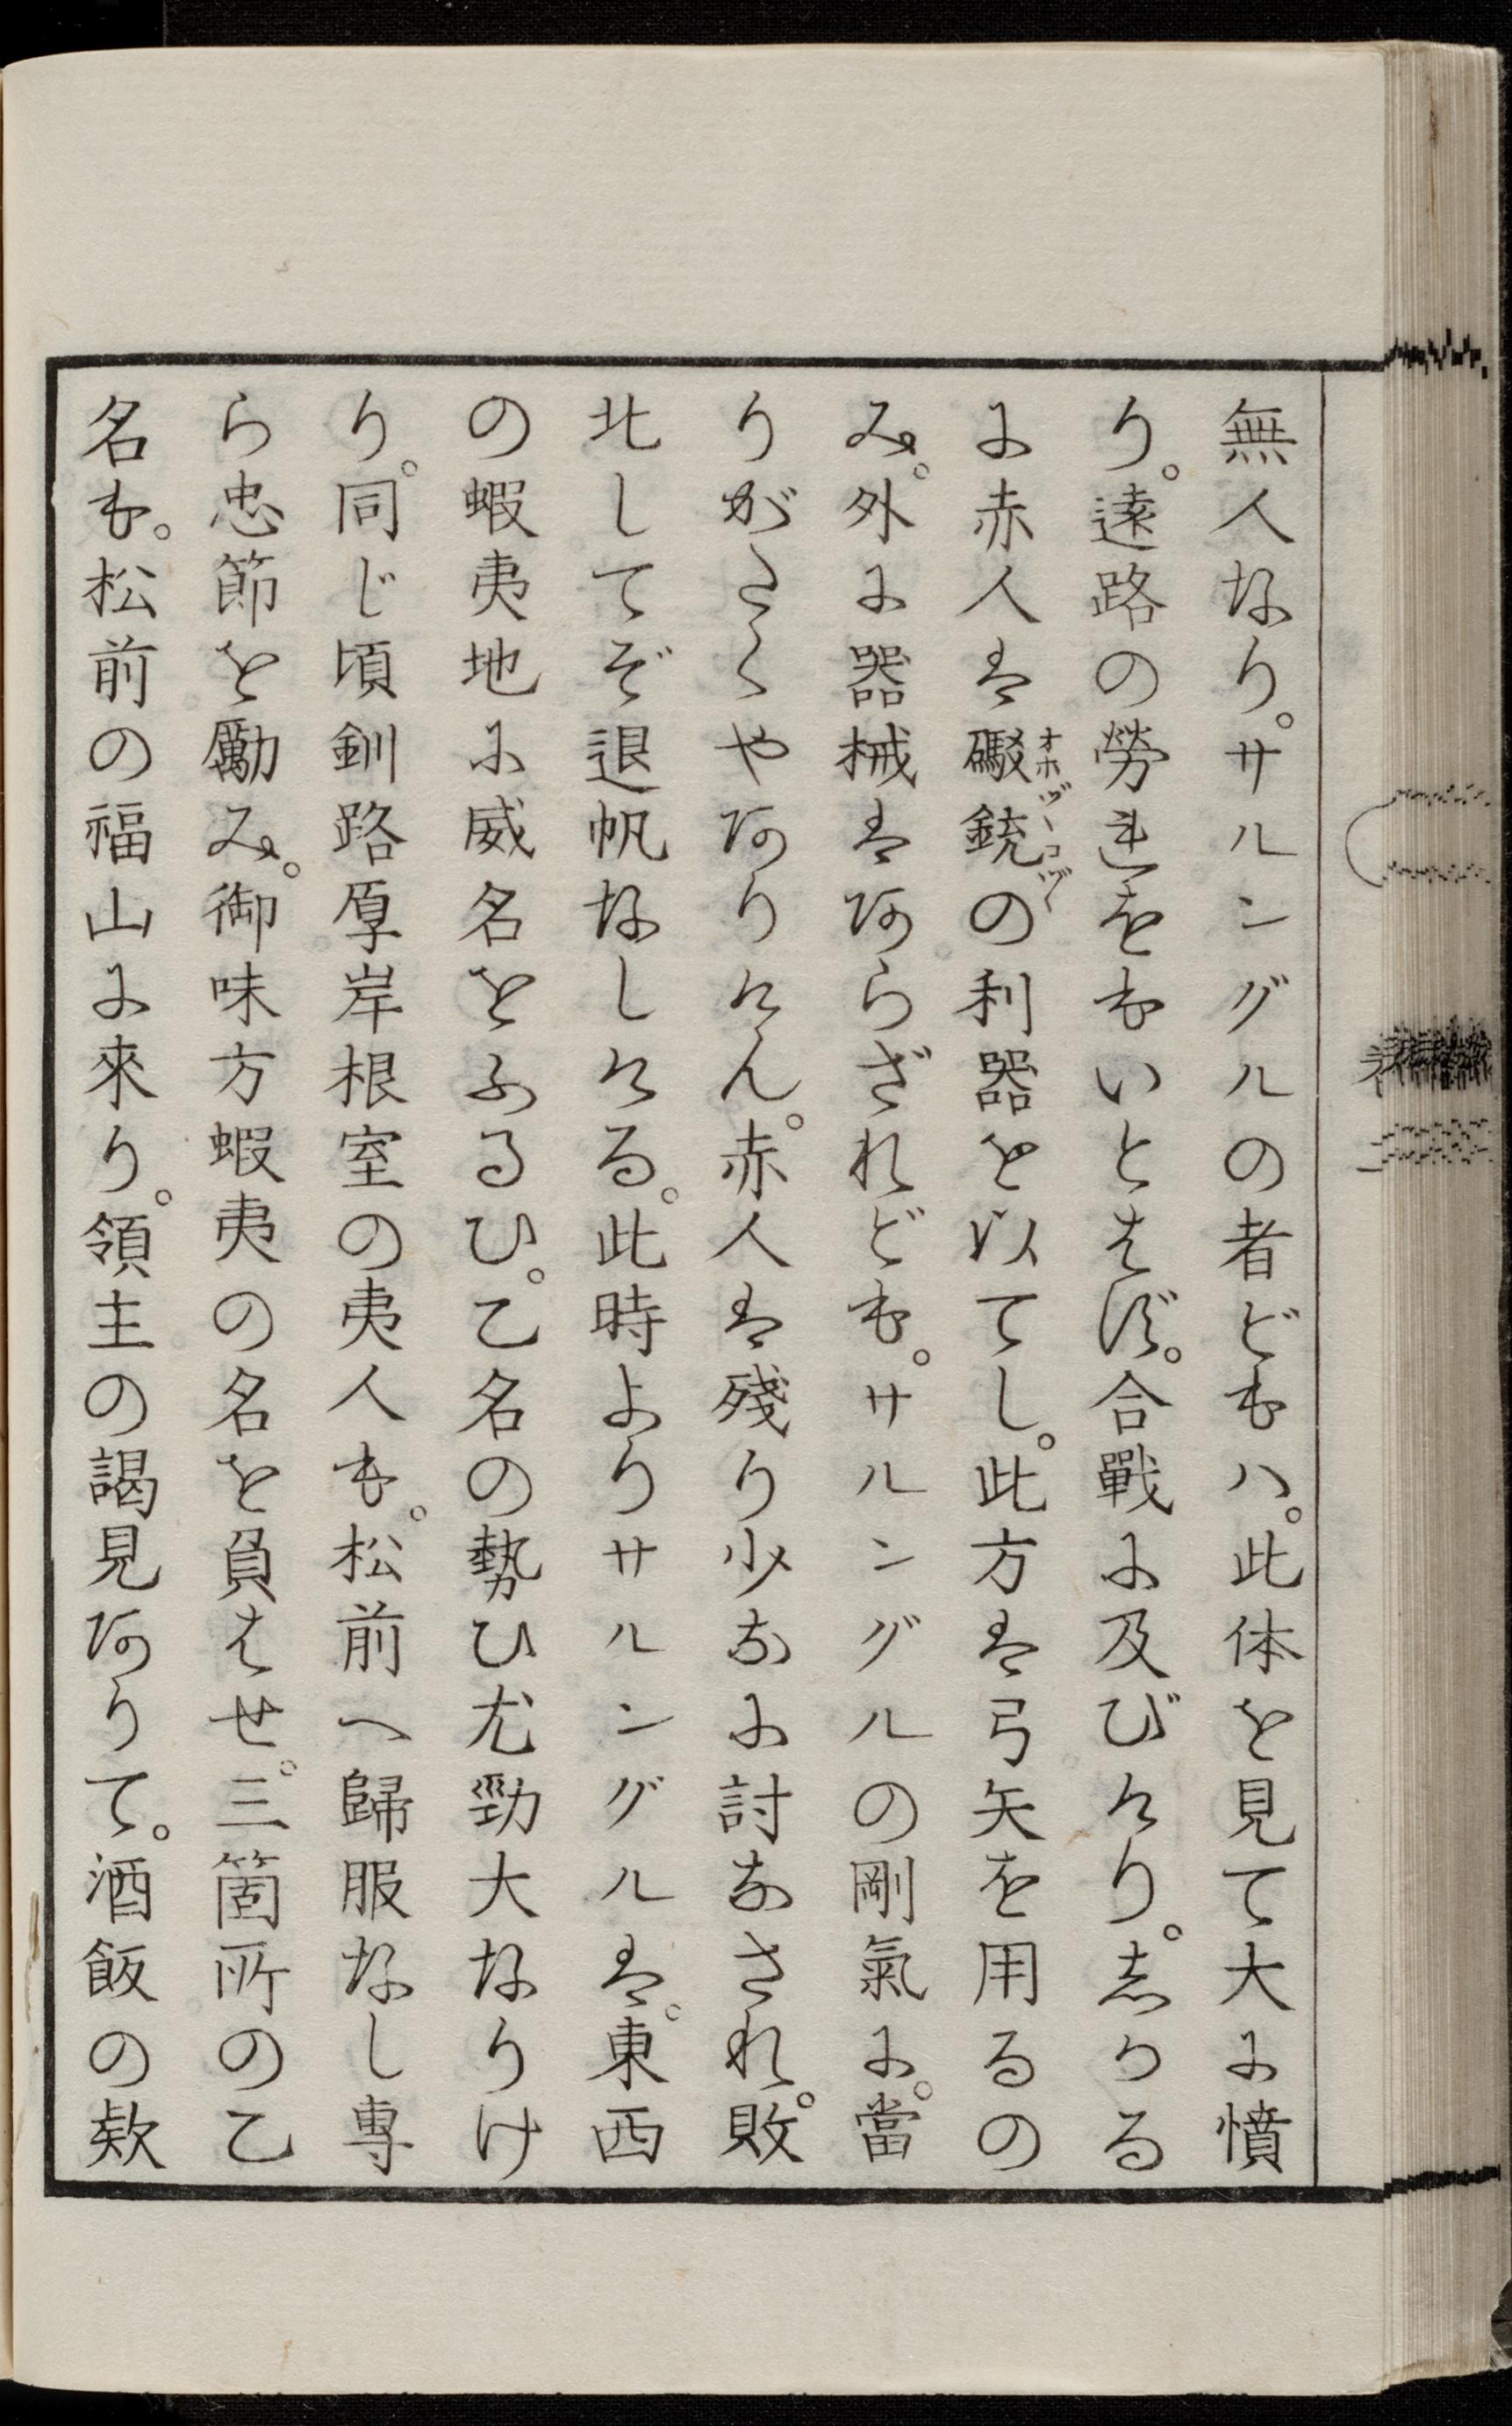 無人なり。サルングルの者どもハ。此体を見て大に憤
り。遠路の勞れをもいとはず。合戰に及びけり。志かる
に赤人は礟銃の利器を以てし。此方は弓矢を用るの
オホヅヽコヅヽ
み。外に器械はあらざれども。サルングルの剛氣に。當
りがたくやありけん。赤人は殘り少なに討なされ。敗
北してぞ退帆なしける。此時よりサルングルは。東西
の蝦夷地に威名をふるひ。乙名の勢ひ尤勁大なりけ
り。同じ頃釧路厚岸根室の夷人も。松前へ歸服なし專
ら忠節を勵み。御味方蝦夷の名を負はせ。三箇所の乙
名も。松前の福山に來り。領主の謁見ありて。酒飯の欵